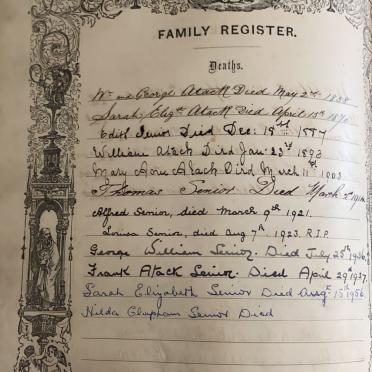 FAMILY REGISTER.
Deaths.
George Atack Died May 2nd
Sarah Elizth Atack Died April 15th
Edith Senior Died Dec: 18th 1887
William Atack Died Jan: 23rd 1893
Mary Ann Atack Died March 11th 1903
Thomas Senior Died March
Alfred Senior, died March 9th 1921.
Louisa Senior, died Aug 7th 1923. R.I.P.
George William Senior. Died July 25th 1936.
Frank Atack Senior. Died April 29 1937.
Sarah Elizabeth Senior Died Augst 15th 1956.
Hilda Clapham Senior Died